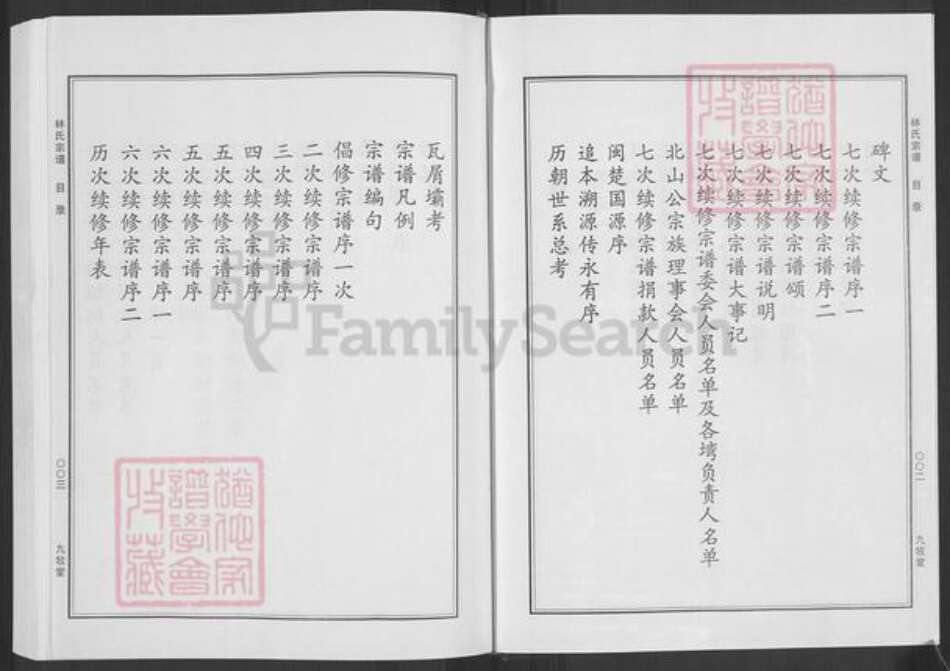 林氏宗谱 目录
〇〇二
九牧堂
碑文
七次续修宗谱序一
七次续修宗谱序二
七次续修宗谱颂
七次续修宗谱说明
七次续修宗谱大事记
七次续修宗谱委会人员名单及各塆负责人名单
北山公宗族理事会人员名单
七次续修宗谱捐款人员名单
闽楚国源序
追本溯源传永有序
历朝世系总考
瓦屑壩考
宗谱凡例
宗谱编句
倡修宗谱序一次
二次续修宗谱序
三次续修宗谱序
四次续修宗谱序
五次续修宗谱序
五次续修宗谱序
六次续修宗谱序一
六次续修宗谱序二
历次续修年表
林氏宗谱 目录
〇〇三
九牧堂
FamilySearch
譜學會
收藏
譜學會
收藏